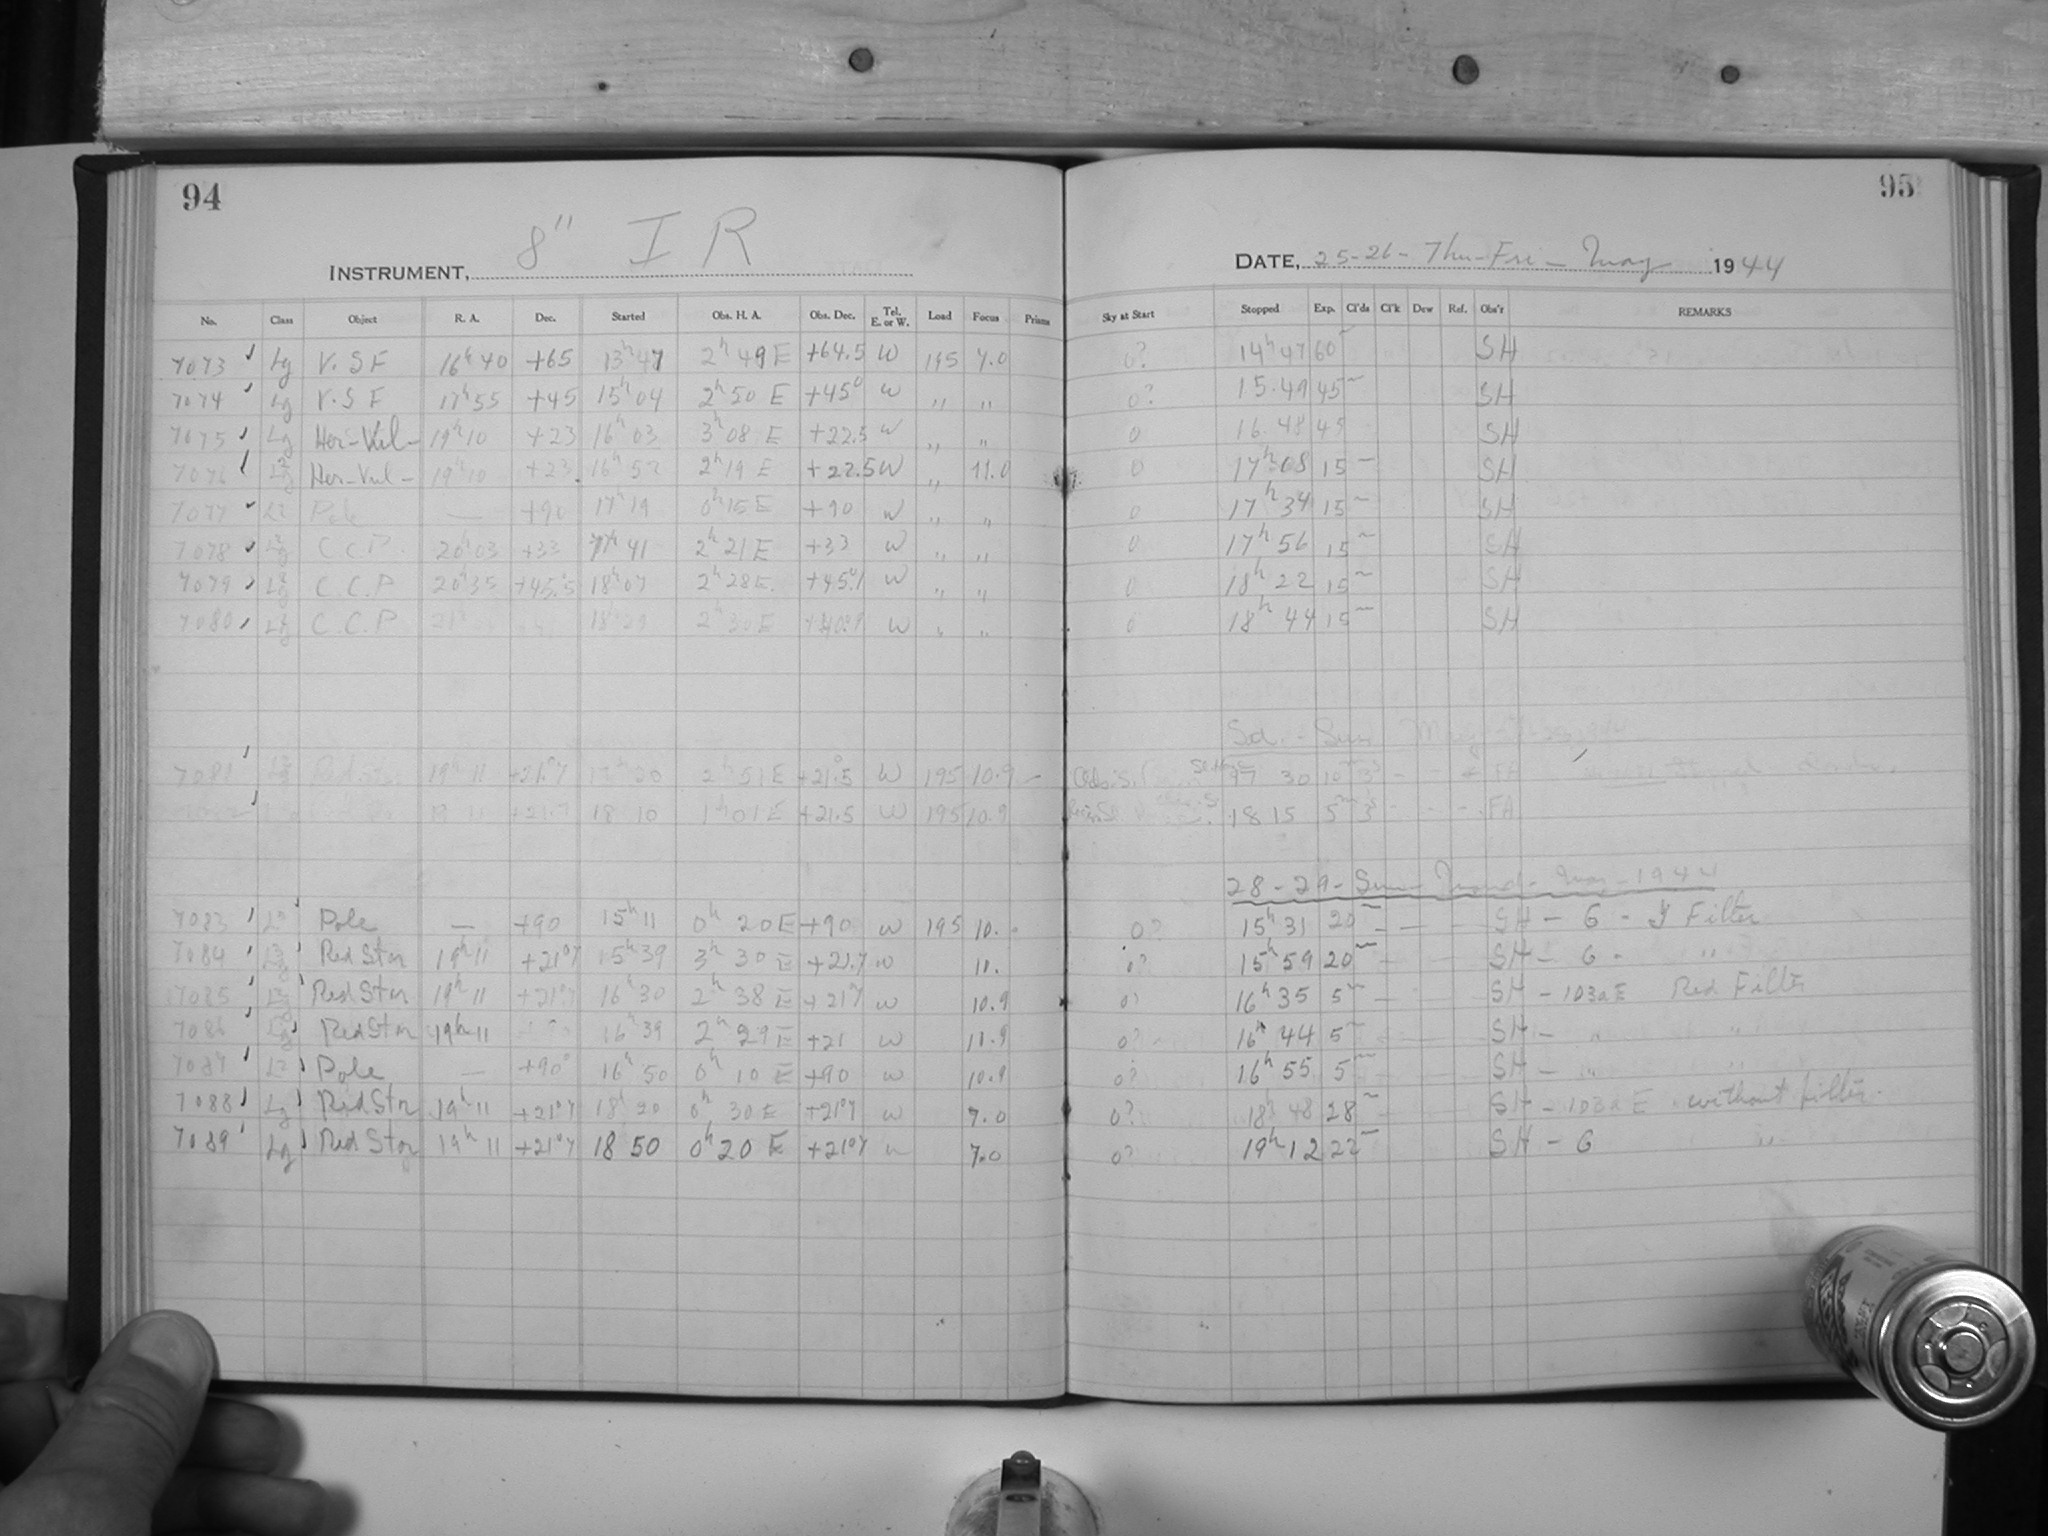 94
8" I R
INSTRUMENT,
No. Class Object R. A. Dec. Started Obs. H. A. Obs. Dec. Tel. E. or W. Load Focus Prisms
7073 Lg V.SF 16h 40 +65 13h 47 2h 49 E +64.5 W 195 7.0
7074 Lg V.SF 17h 55 +45 15h 04 2h 50 E +45° W " "
7075 Lg Her-Vul- 19h 10 +23 16h 03 3h 08 E +22.5 W " "
7076 Her-Vul- 19h 10 +23 16h 53 2h 19 E +22.5 W " 11.0
7077 Pole — +90 17h 19 0h 15 E +90 W " "
7078 C.C.P. 20h 03 +33 17h 41 2h 21 E +33 W " "
7079 C.C.P 20h 35 +45.5 18h 07 2h 28 E. W " "
7080 C.C.P 2h 30 E W " "
7081 Red Star 19h 11 +21°7 2h 51 E +21.5 W 195 10.9
19 11 +21.7 18 10 1h 01 E +21.5 W 195 10.9
7083 Pole — +90 15h 11 0h 20 E +90 W 195 10.
7084 Red Star 19h 11 +21°7 15h 39 3h 30 E +21.7 W
7085 Red Star 19h 11 +21°7 16h 30 2h 38 E +21°7 W 10.9
7086 Red Star 19h 11 16h 39 2h 29 E +21 W
7087 Pole — +90° 16h 50 0h 10 E +90 W 10.9
7088 Lg Red Star 19h 11 +21°7 18h 20 0h 30 E +21°7 W 7.0
7089 Lg Red Star 19h 11 +21°7 18 50 0h 20 E +21°7 W 7.0
95
DATE, 25-26- Thu-Fri- May 1944
Sky at Start Stopped Exp. Cl'ds Cl'k Dew Ref. Obs'r REMARKS
0? 14h 47 60 SH
0? 15.49 45 SH
0 16.48 45 SH
0 17h 08 15 SH
0 17h 34 15 SH
0 17h 56 15 SH
0 18h 22 15 SH
0 18h 44 15 SH
Sat. - Sun May
30 10 3 - - FA
18 15 5 3 - - - FA
28-29- Sun- May-1944
0? 15h 31 20 SH - G - Y Filter
0? 15h 59 20 SH - G - "
0? 16h 35 5 SH - 103aE Red Filter
0? 16h 44 5 SH - "
0? 16h 55 5 SH - "
0? 18h 48 28 SH - 103aE without filter.
0? 19h 12 22 SH - G "